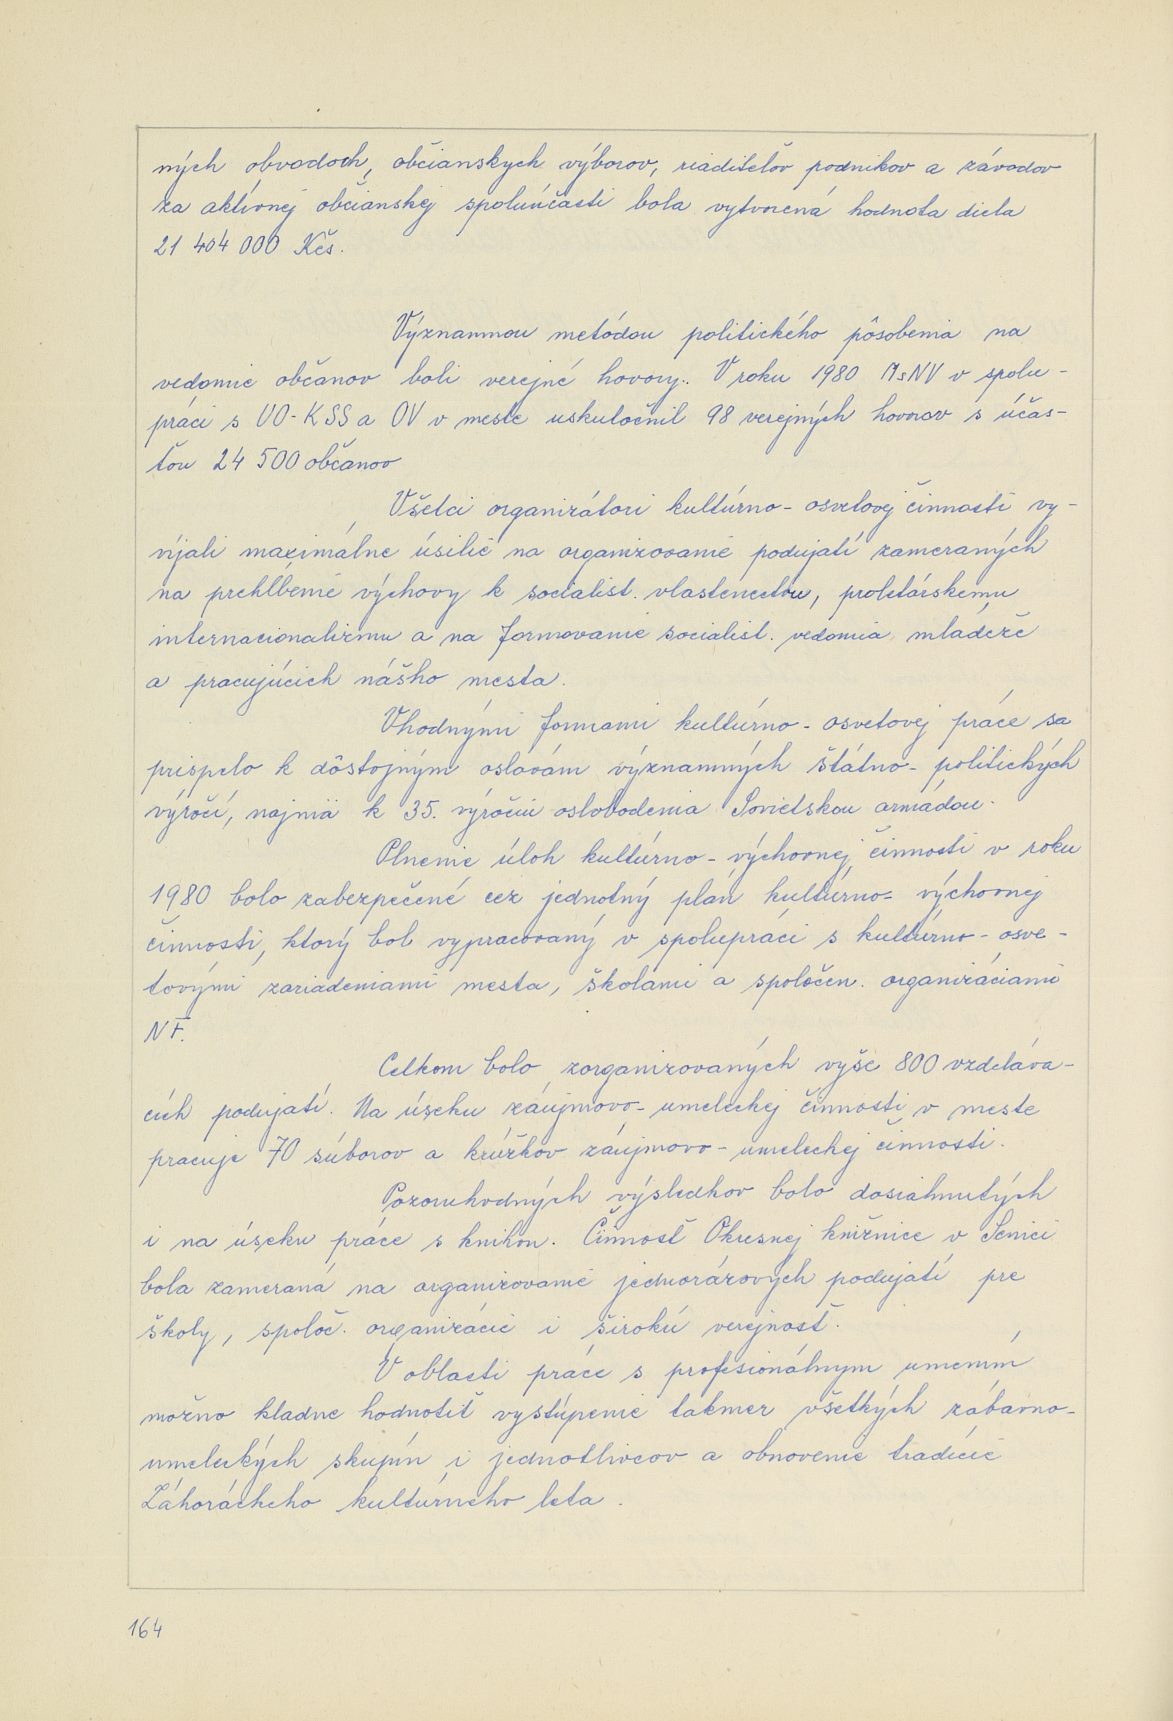 ných obvodoch, občianskych výborov, riaditeľov podnikov a závodov
za aktívnej občianskej spoluúčasti bola vytvorená hodnota diela
21 404 000 Kčs.
Významnou metódou politického pôsobenia na
vedomie občanov boli verejné hovory. V roku 1980 MsNV v spolu-
práci s UO-KSS a OV v meste uskutočnil 98 verejných hovorov s účas-
ťou 24 500 občanov
Všetci organizátori kultúrno-osvetovej činnosti vy-
víjali maximálne úsilie na organizovanie podujatí zameraných
na prehĺbenie výchovy k socialist. vlastenectvu, proletárskemu
internacionalizmu a na formovanie socialist. vedomia mládeže
a pracujúcich nášho mesta.
Vhodnými formami kultúrno-osvetovej práce sa
prispelo k dôstojným oslavám významných štátno-politických
výročí, najmä k 35. výročiu oslobodenia Sovietskou armádou.
Plnenie úloh kultúrno-výchovnej činnosti v roku
1980 bolo zabezpečené cez jednotný plán kultúrno-výchovnej
činnosti, ktorý bol vypracovaný v spolupráci s kultúrno-osve-
tovými zariadeniami mesta, školami a spoločen. organizáciami
NF.
Celkom bolo zorganizovaných vyše 800 vzdeláva-
cích podujatí. Na úseku záujmovo-umeleckej činnosti v meste
pracuje 70 súborov a krúžkov záujmovo-umeleckej činnosti.
Pozoruhodných výsledkov bolo dosiahnutých
i na úseku práce s knihou. Činnosť Okresnej knižnice v Senici
bola zameraná na organizovanie jednorázových podujatí pre
školy, spoloč. organizácie i širokú verejnosť.
V oblasti práce s profesionálnym umením
možno kladne hodnotiť vystúpenie takmer všetkých zábavno-
umeleckých skupín i jednotlivcov a obnovenie tradície
Záhoráckeho kultúrneho leta.
164